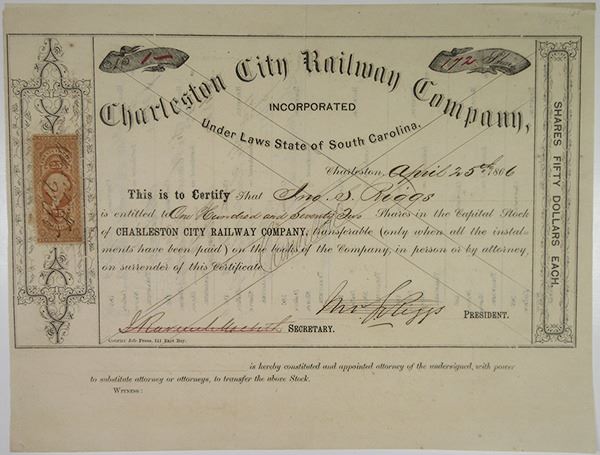 1
172 Shares
Charleston City Railway Company,
INCORPORATED
Under Laws State of South Carolina.
Charleston, April 25th 1866
This is to Certify That Jno. S. Riggs
is entitled to One Hundred and Seventy Two Shares in the Capital Stock
of CHARLESTON CITY RAILWAY COMPANY, transferable (only when all the instal-
ments have been paid) on the books of the Company, in person or by attorney,
on surrender of this Certificate
Jno S Riggs PRESIDENT.
SECRETARY.
Courier Job Press, 111 East Bay.
SHARES FIFTY DOLLARS EACH.
is hereby constituted and appointed attorney of the undersigned, with power
to substitute attorney or attorneys, to transfer the above Stock.
WITNESS: